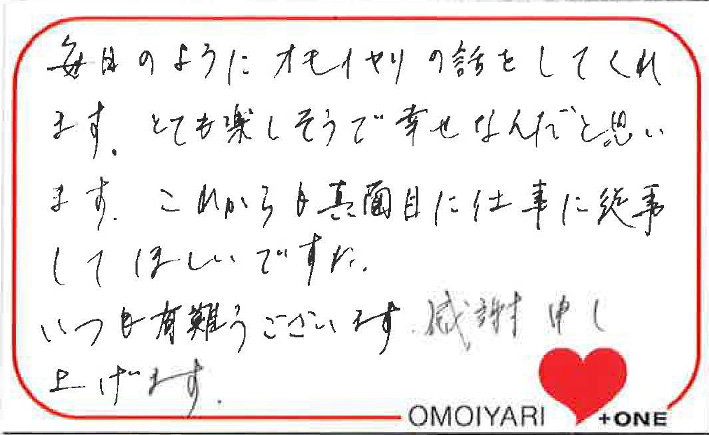 毎日のようにオモイヤリの話をしてくれ
ます。とても楽しそうで幸せなんだと思い
ます。これからも真面目に仕事に従事
してほしいです。
いつも有難うございます。感謝申し
上げます。
OMOIYARI +ONE